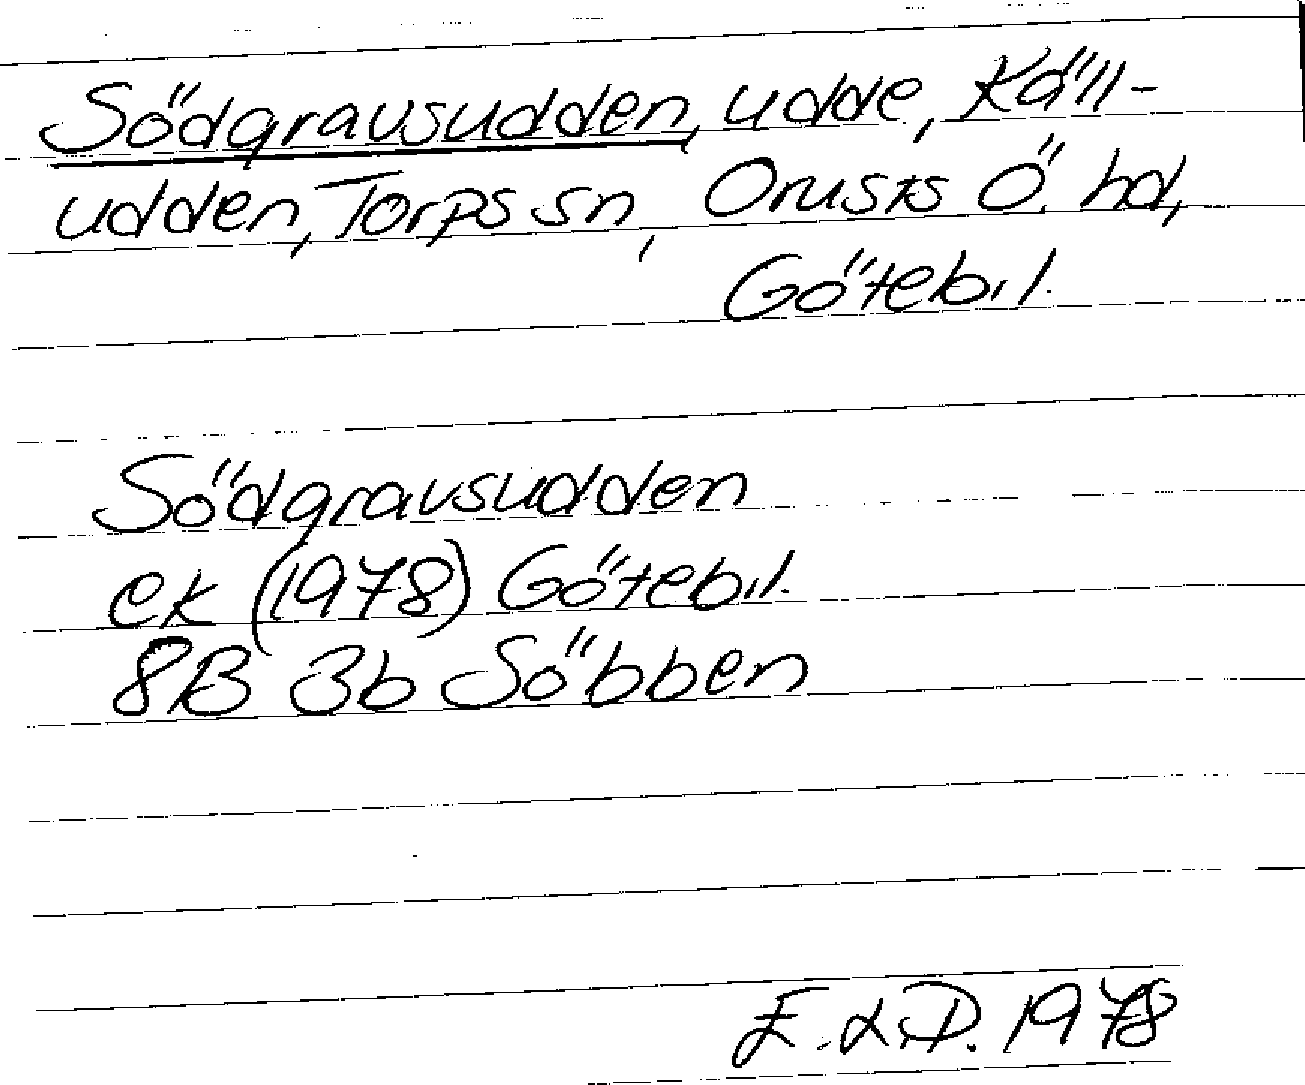 Södgravsudden, udde, Käll-
udden, Torps sn, Orusts Ö. hd,
Göteb. l.
Södgravsudden
ek (1978) Göteb. l.
8B 3b Söbben
E. L. D. 1978